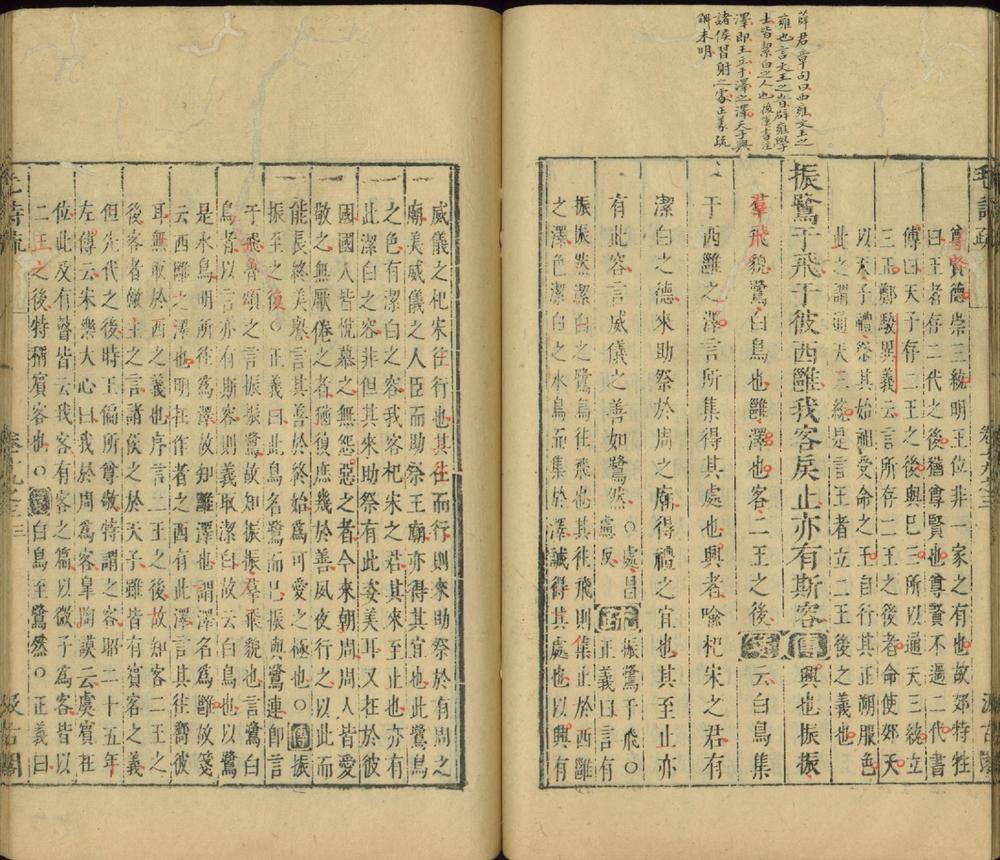 薛君章句曰西雍文王之
雍也言文王之時辟雍學
士皆潔白之人也後漢書注
澤即王立于澤之澤天子與
諸侯習射之處正義疏
解未明
毛詩疏 卷十九之三 汲古閣
尊賢德崇三統明王位非一家之有也故郊特牲
曰王者存二代之後猶尊賢也尊賢不過二代書
傳曰天子存二王之後與己三所以通天三統立
三正鄭駮異義云言所存二王之後者命使郊天
以天子禮祭其始祖受命之王自行其正朔服色
此之謂通天三統是言王者立二王後之義也
振鷺于飛于彼西雝我客戾止亦有斯容傳興也振振
羣飛貌鷺白鳥也雝澤也客二王之後箋云白鳥集
于西雝之澤言所集得其處也興者喻杞宋之君有
潔白之德來助祭於周之廟得禮之宜也其至止亦
有此容言威儀之善如鷺然○處昌慮反疏振鷺于飛○正義曰言有
振振然潔白之鷺鳥往飛也其往飛則集止於西雝
之澤色潔白之水鳥而集於澤誠得其處也以興有
威儀之杞宋往行也其往而行則來助祭於有周之
廟美威儀之人臣而助祭王廟亦得其宜也此鷺鳥
之色有潔白之容我客杞宋之君其來至止也亦有
此潔白之容非但其來助祭有此姿美耳又在於彼
國國人皆悅慕之無怨惡之者今來朝周周人皆愛
敬之無厭倦之者猶復庶幾於善夙夜行之以此而
能長終美譽言其善於終始爲可愛之極也○傳振
振至之後○正義曰此鳥名鷺而已振與鷺連即言
于飛魯頌之言振振鷺故知振振羣飛貌也言鷺白
鳥者以言亦有斯容則義取潔白故云白鳥也以鷺
是水鳥明所往爲澤故知雝澤也謂澤名爲雝故箋
云西雝之澤也明在作者之西有此澤言其往嚮彼
耳無取於西之義也序言二王之後故知客二王之
後客者敵主之言諸侯之於天子雖皆有賓客之義
但先代之後時王偏所尊敬特謂之客昭二十五年
左傳云宋樂大心曰我於周爲客皐陶謨云虞賓在
位此及有瞽皆云我客有客之篇以微子爲客皆以
二王之後特稱賓客也○箋白鳥至鷺然○正義曰
毛詩疏 卷十九之三 三 汲古閣